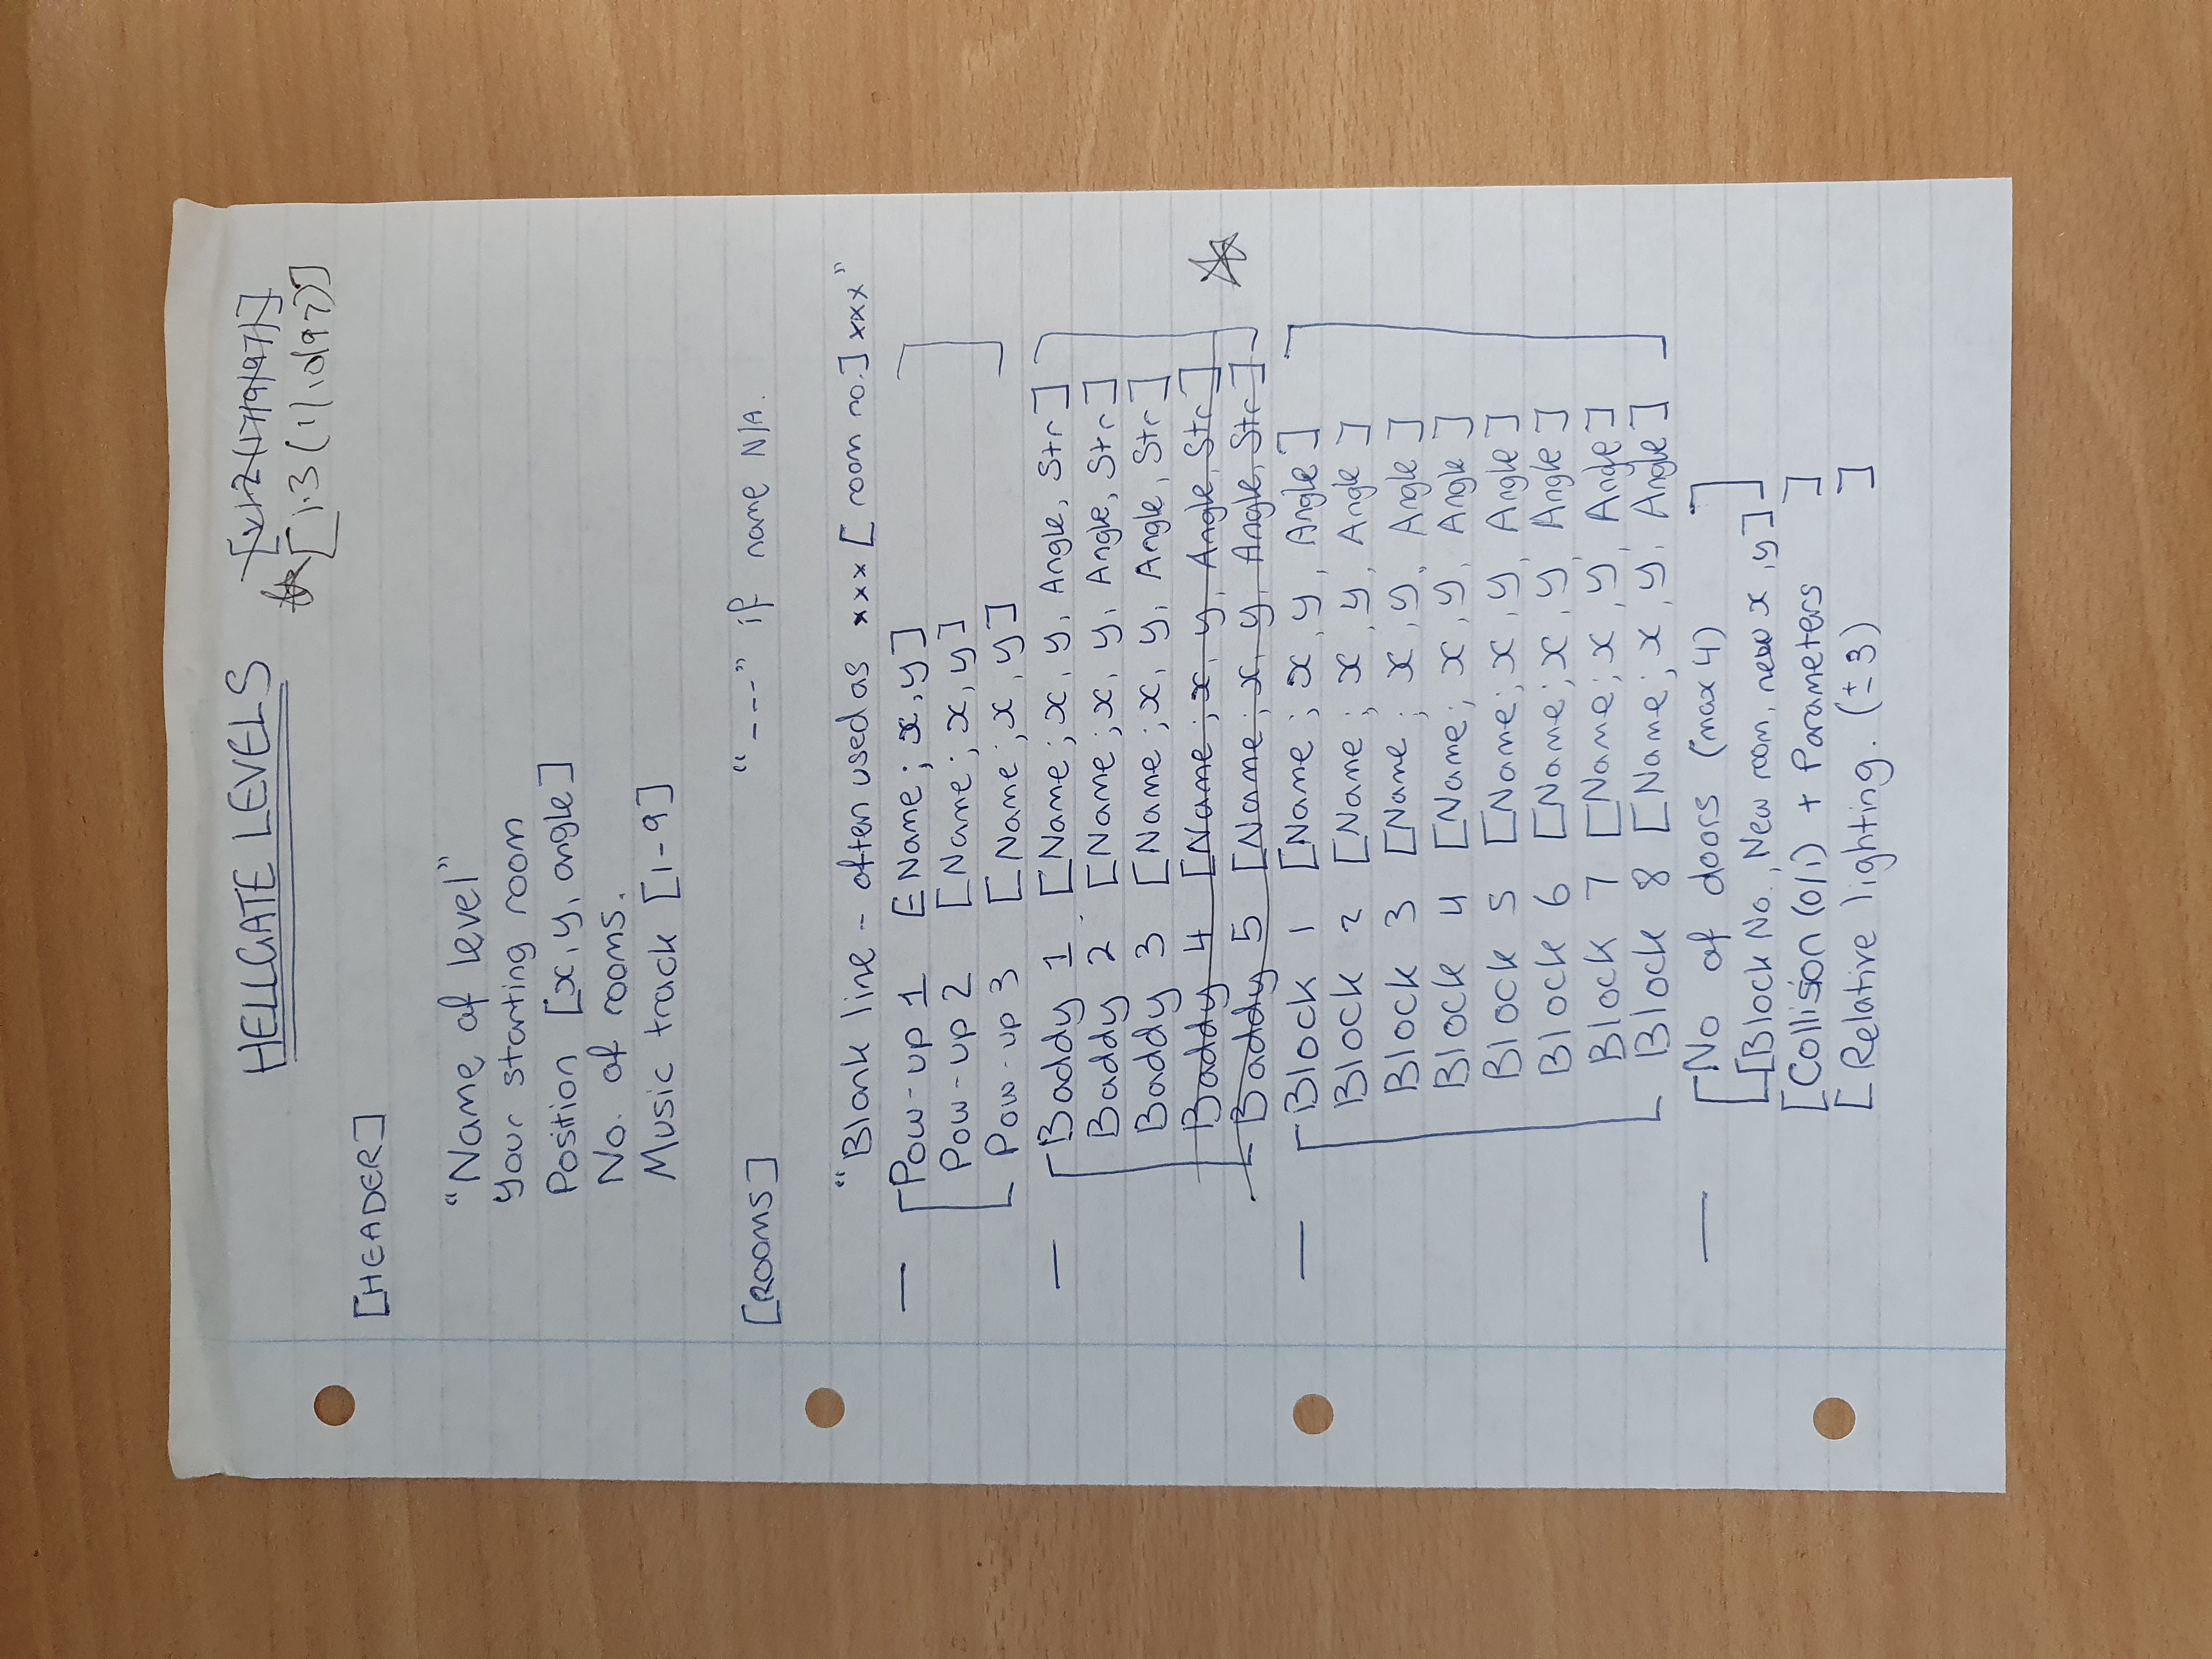 HELLGATE LEVELS
[v1.2 (17/9/97)]
[1.3 (1/10/97)]
[HEADER]
"Name of level"
Your starting room
Position [x, y, angle]
No. of rooms.
Music track [1-9]
[ROOMS]
"---" if name N/A.
"Blank line - often used as xxx [room no.] xxx"
Pow-up 1 [Name; x, y]
Pow-up 2 [Name; x, y]
Pow-up 3 [Name; x, y]
Baddy 1 [Name; x, y, Angle, Str]
Baddy 2 [Name; x, y, Angle, Str]
Baddy 3 [Name; x, y, Angle, Str]
Baddy 4 [Name; x, y, Angle, Str]
Baddy 5 [Name; x, y, Angle, Str]
Block 1 [Name; x, y, Angle]
Block 2 [Name; x, y, Angle]
Block 3 [Name; x, y, Angle]
Block 4 [Name; x, y, Angle]
Block 5 [Name; x, y, Angle]
Block 6 [Name; x, y, Angle]
Block 7 [Name; x, y, Angle]
Block 8 [Name; x, y, Angle]
No of doors (max 4)
[Block No., New room, new x, y]
[Collision (0/1) + Parameters ]
[Relative lighting. (±3) ]